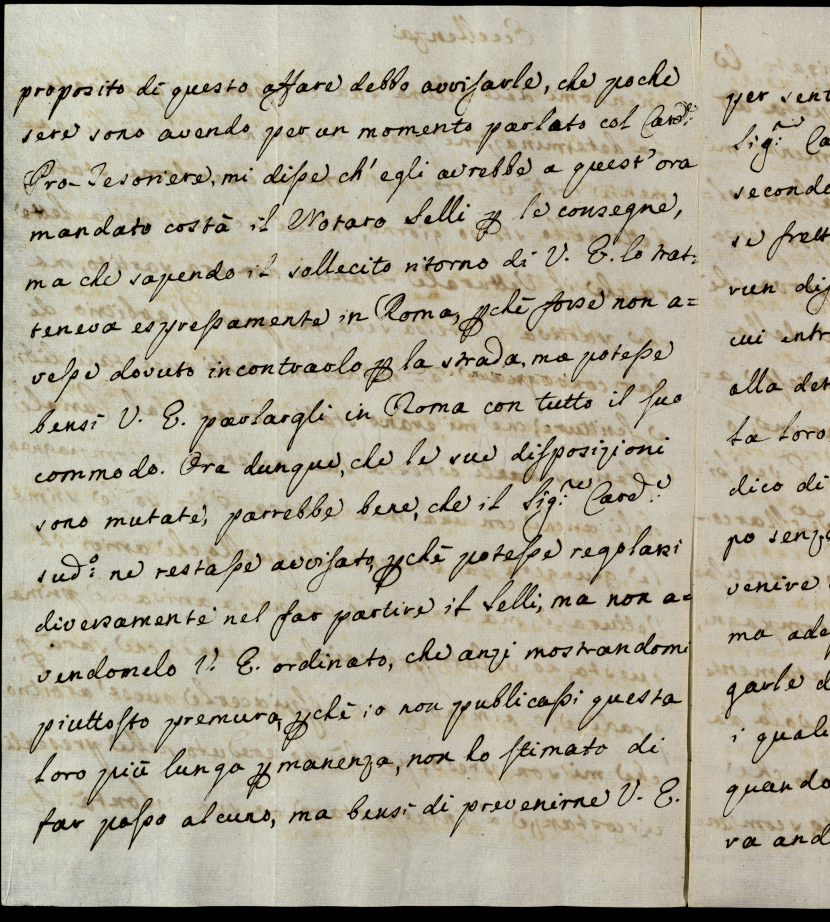 proposito di questo affare debbo avvisarle, che poche
sere sono avendo per un momento parlato col Card.e
Pro-Tesoriere, mi disse ch'egli avrebbe a quest'ora
mandato costà il Notaro Selli p le consegne,
ma che sapendo il sollecito ritorno di V. E. lo trat=
teneva espressamente in Roma, pchè forse non a=
vesse dovuto incontrarlo p la strada, ma potesse
bensì V. E. parlargli in Roma con tutto il suo
commodo. Ora dunque, che le sue disposizioni
sono mutate, parrebbe bene, che il Sig.re Card.e
sud.o ne restasse avvisato, pchè potesse regolarsi
diversamente nel far partire il Selli, ma non a=
vendomelo V. E. ordinato, che anzi mostrandomi
piuttosto premura, pchè io non publicassi questa
loro più lunga pmanenza, non ho stimato di
far passo alcuno, ma bensì di prevenirne V. E.
per sent
Sig.re Ca
seconde
se frett
run dis
cui entr
alla det
ta loro
dico di
po senz
venire
ma ade
garle d
i quali
quando
va and